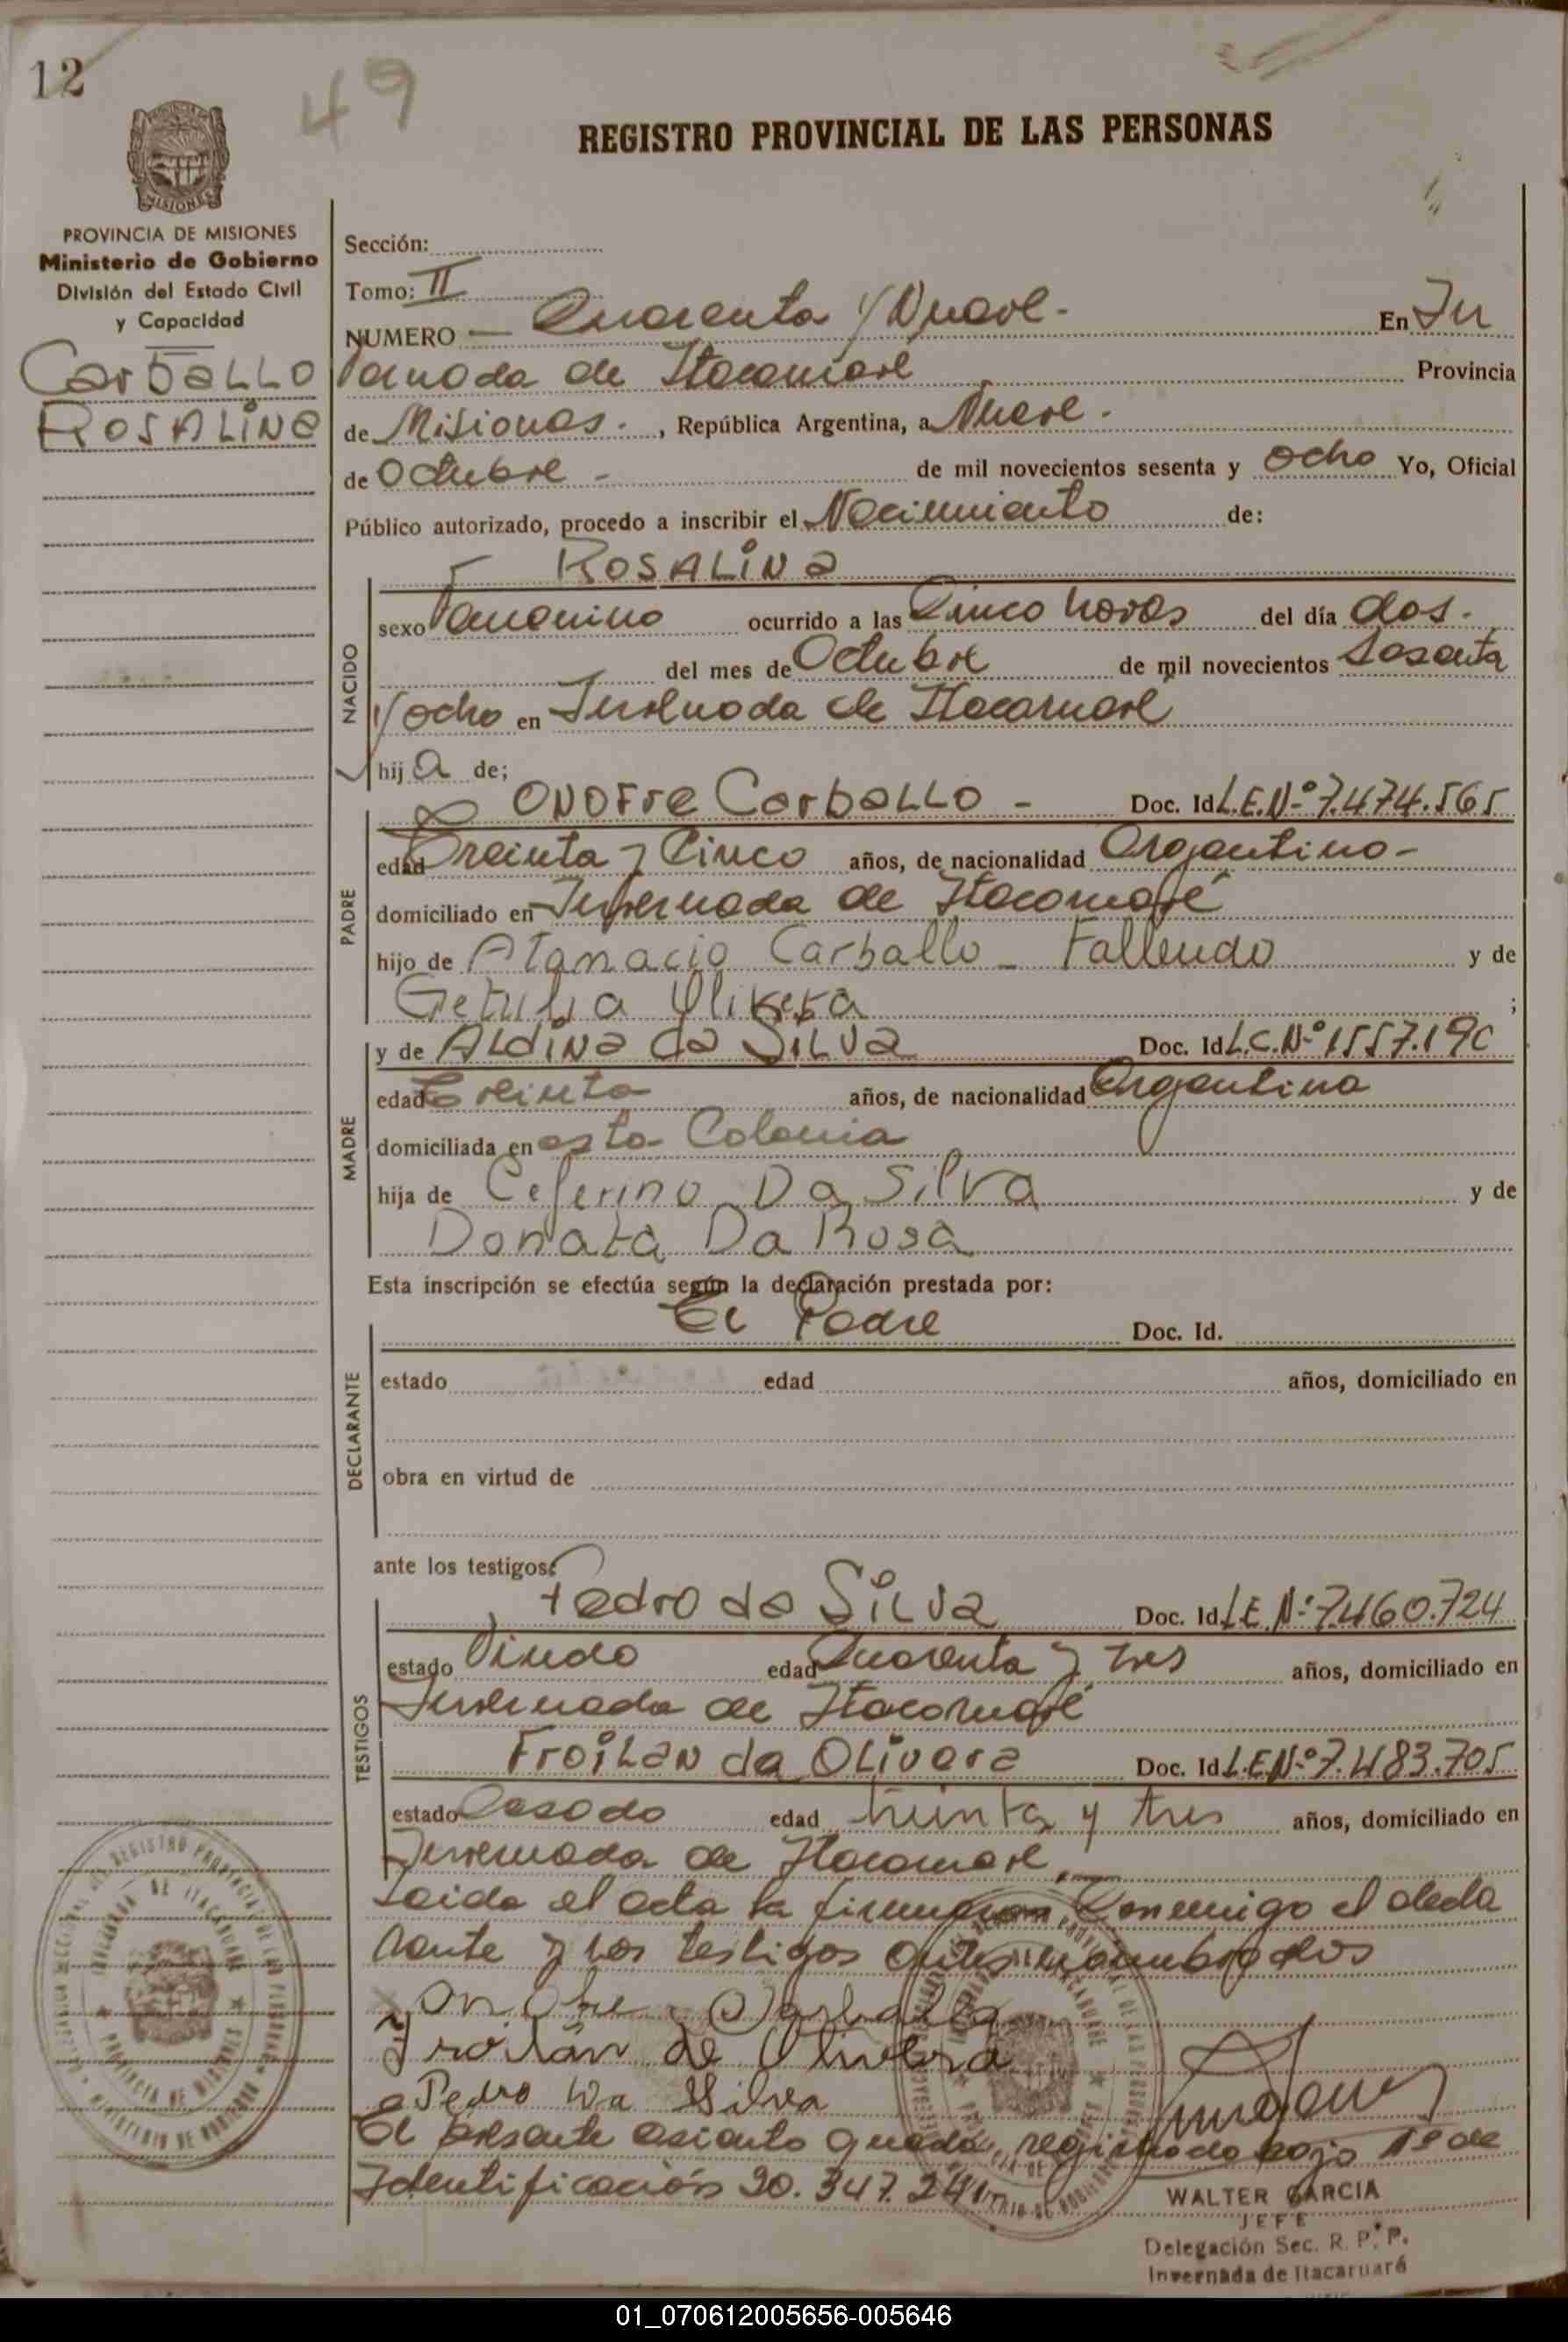 12
49
REGISTRO PROVINCIAL DE LAS PERSONAS
MISIONES
PROVINCIA DE MISIONES
Ministerio de Gobierno
División del Estado Civil
y Capacidad
CarbaLLO
ROSALINA
Sección:
Tomo: II
NUMERO — Cuarenta y Nueve - En In
vernada de Itacaruaré Provincia
de Misiones. , República Argentina, a Nueve.
de Octubre - de mil novecientos sesenta y ocho Yo, Oficial
Público autorizado, procedo a inscribir el Nacimiento de:
ROSALINA
NACIDO
sexo Femenino ocurrido a las Cinco horas del día dos.
del mes de Octubre de mil novecientos Sesenta
y ocho en Invernada de Itacaruaré
hij a de;
PADRE
ONOFre CarbaLLO - Doc. Id L.E.Nº 7.474.565
edad Treinta y Cinco años, de nacionalidad Argentino-
domiciliado en Invernada de Itacaruaré
hijo de Atanacio Carballo - Fallecido y de
Getulia Olivera ;
MADRE
y de ALdiNa da SiLva Doc. Id L.C.Nº 1557.190
edad Treinta años, de nacionalidad Argentina
domiciliada en esta Colonia
hija de Ceferino Da Silva y de
Donata Da Rosa
Esta inscripción se efectúa según la declaración prestada por:
DECLARANTE
El Padre Doc. Id.
estado edad años, domiciliado en
obra en virtud de
ante los testigos:
TESTIGOS
Pedro da SiLva Doc. Id L.E.Nº 7.460.724
estado Viudo edad Cuarenta y tres años, domiciliado en
Invernada de Itacaruaré
FroiLaN da OLivera Doc. Id L.E.Nº 7.483.705
estado Casado edad treinta y tres años, domiciliado en
Invernada de Itacaruaré
Leida el acta la firman Conmigo el decla
rante y los testigos antes nombrados
Onofre Carballo
Froilán de Olivera
Pedro Da Silva
El presente asiento queda registrado bajo Nº de
Identificación 20.347.241
WALTER GARCIA
JEFE
Delegación Sec. R. P. P.
Invernada de Itacaruaré
01_070612005656-005646